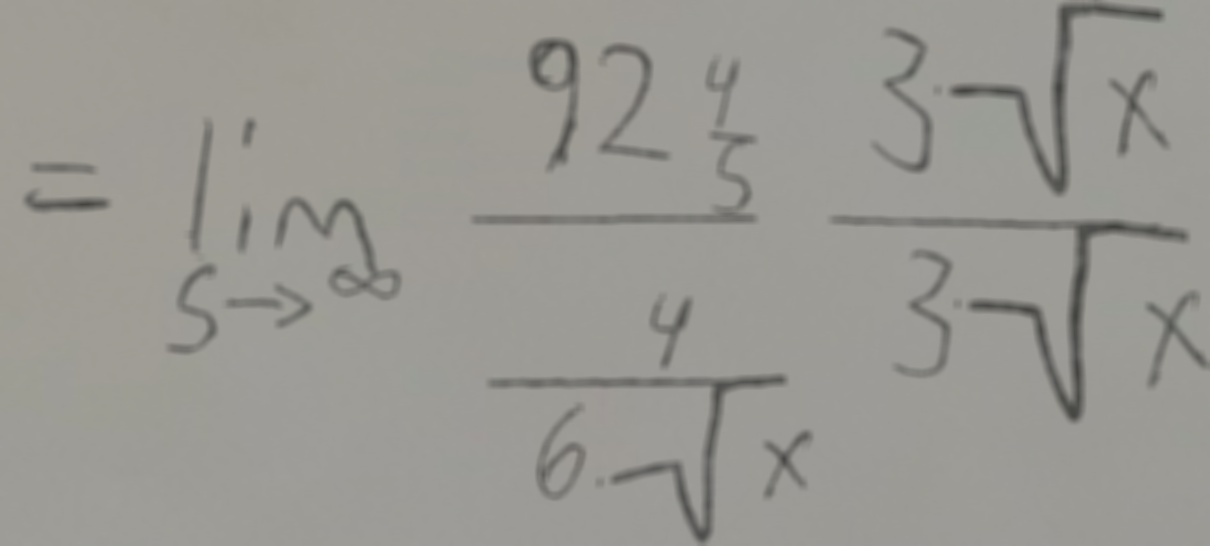 = lim_{S→∞} \frac{92\frac{4}{5}}{\frac{4}{6·\sqrt{x}}} \frac{3·\sqrt{x}}{3·\sqrt{x}}